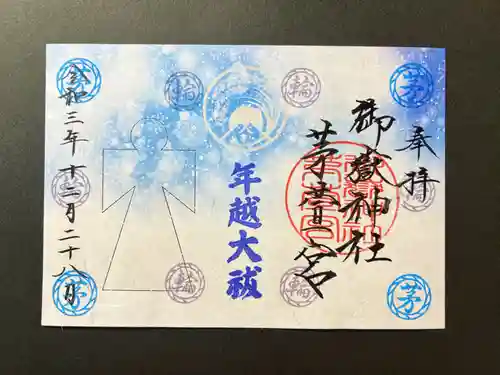 奉拝
御嶽神社
茅萱宮
年越大祓
令和三年十二月二十八日
茅
輪
輪
茅
輪
輪
茅
輪
輪
茅